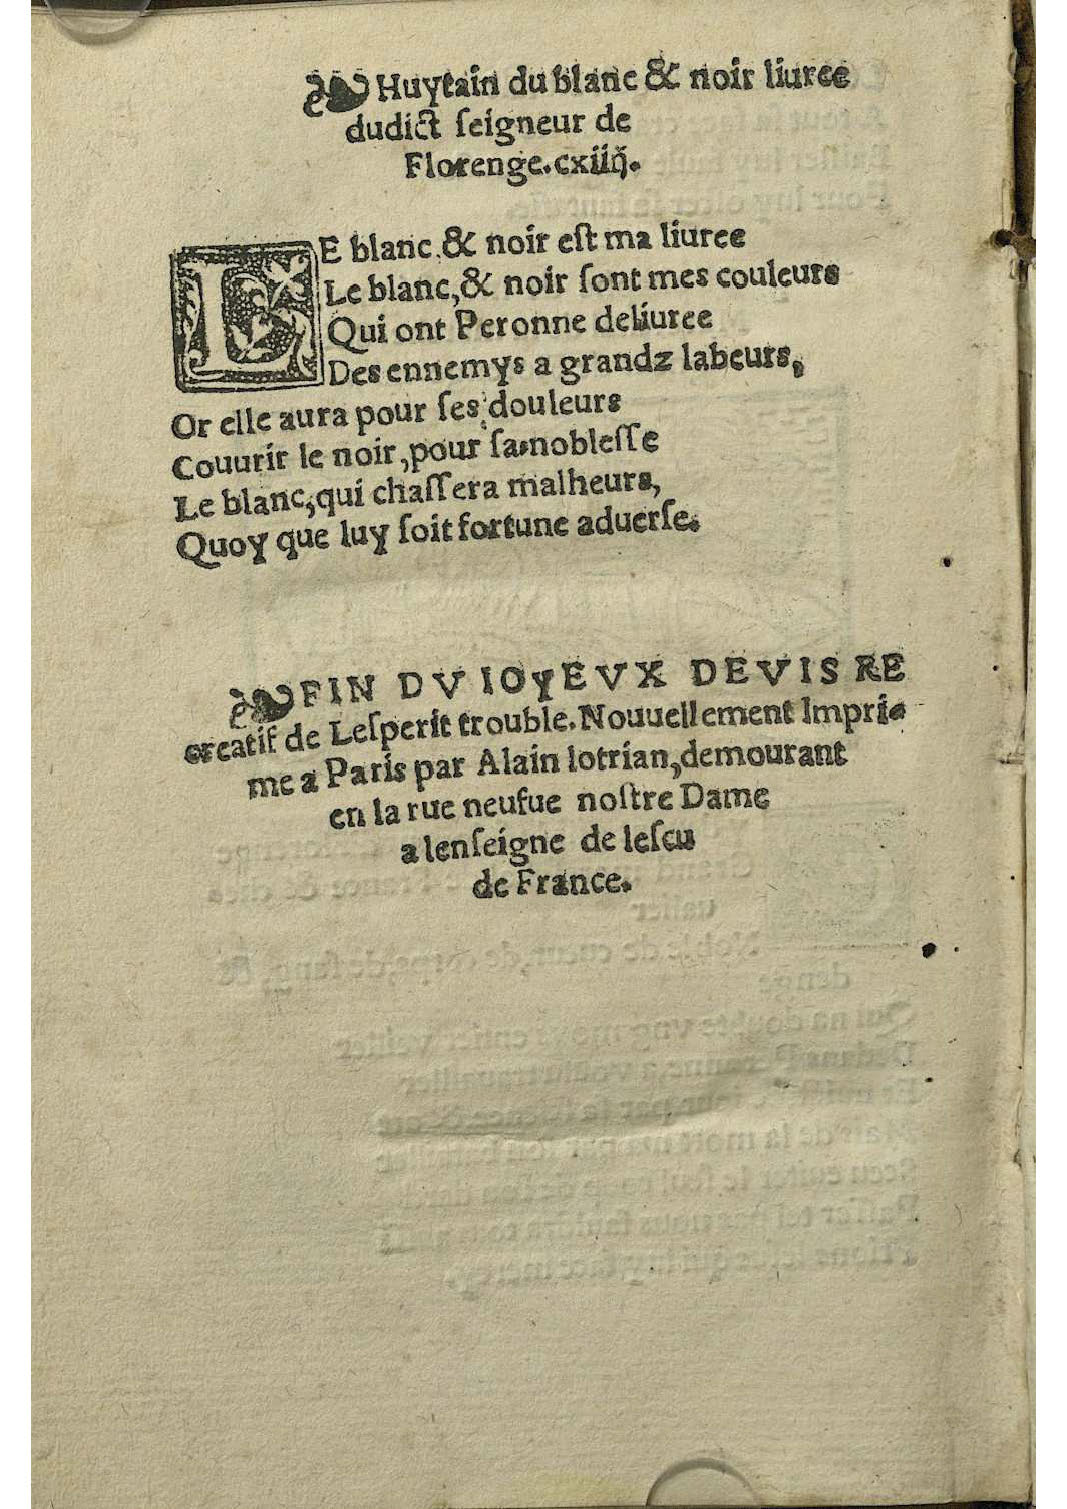 Huytain du blanc & noir liuree
dudict ſeigneur de
Florenge. cxiiij.
LE blanc & noir eſt ma liuree
Le blanc, & noir ſont mes couleurs
Qui ont Peronne deliuree
Des ennemys a grandz labeurs,
Or elle aura pour ſes douleurs
Couurir le noir, pour ſa nobleſſe
Le blanc, qui chaſſera malheurs,
Quoy que luy ſoit fortune aduerſe.
FIN DV IOYEVX DEVIS RE
creatif de Leſperit trouble. Nouuellement Impri-
me a Paris par Alain lotrian, demourant
en la rue neufue noſtre Dame
a lenſeigne de leſcu
de France.